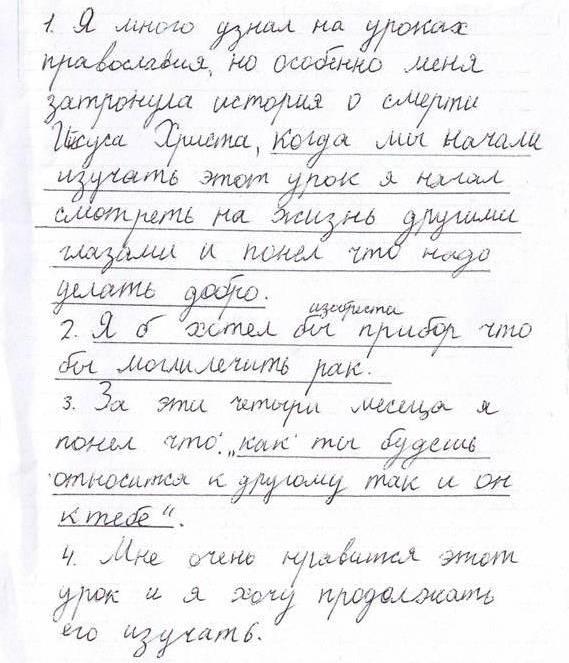 1. Я много узнал на уроках
православия, но особенно меня
затронула история о смерти
Иисуса Христа, когда мы начали
изучать этот урок я начал
смотреть на жизнь другими
глазами и понел что надо
делать добро.
изабрести
2. Я б хотел бы прибор что
бы могли лечить рак.
3. За эти четыри месеца я
понел что: „как ты будешь
относится к другому так и он
к тебе“.
4. Мне очень нравится этот
урок и я хочу продолжать
его изучать.